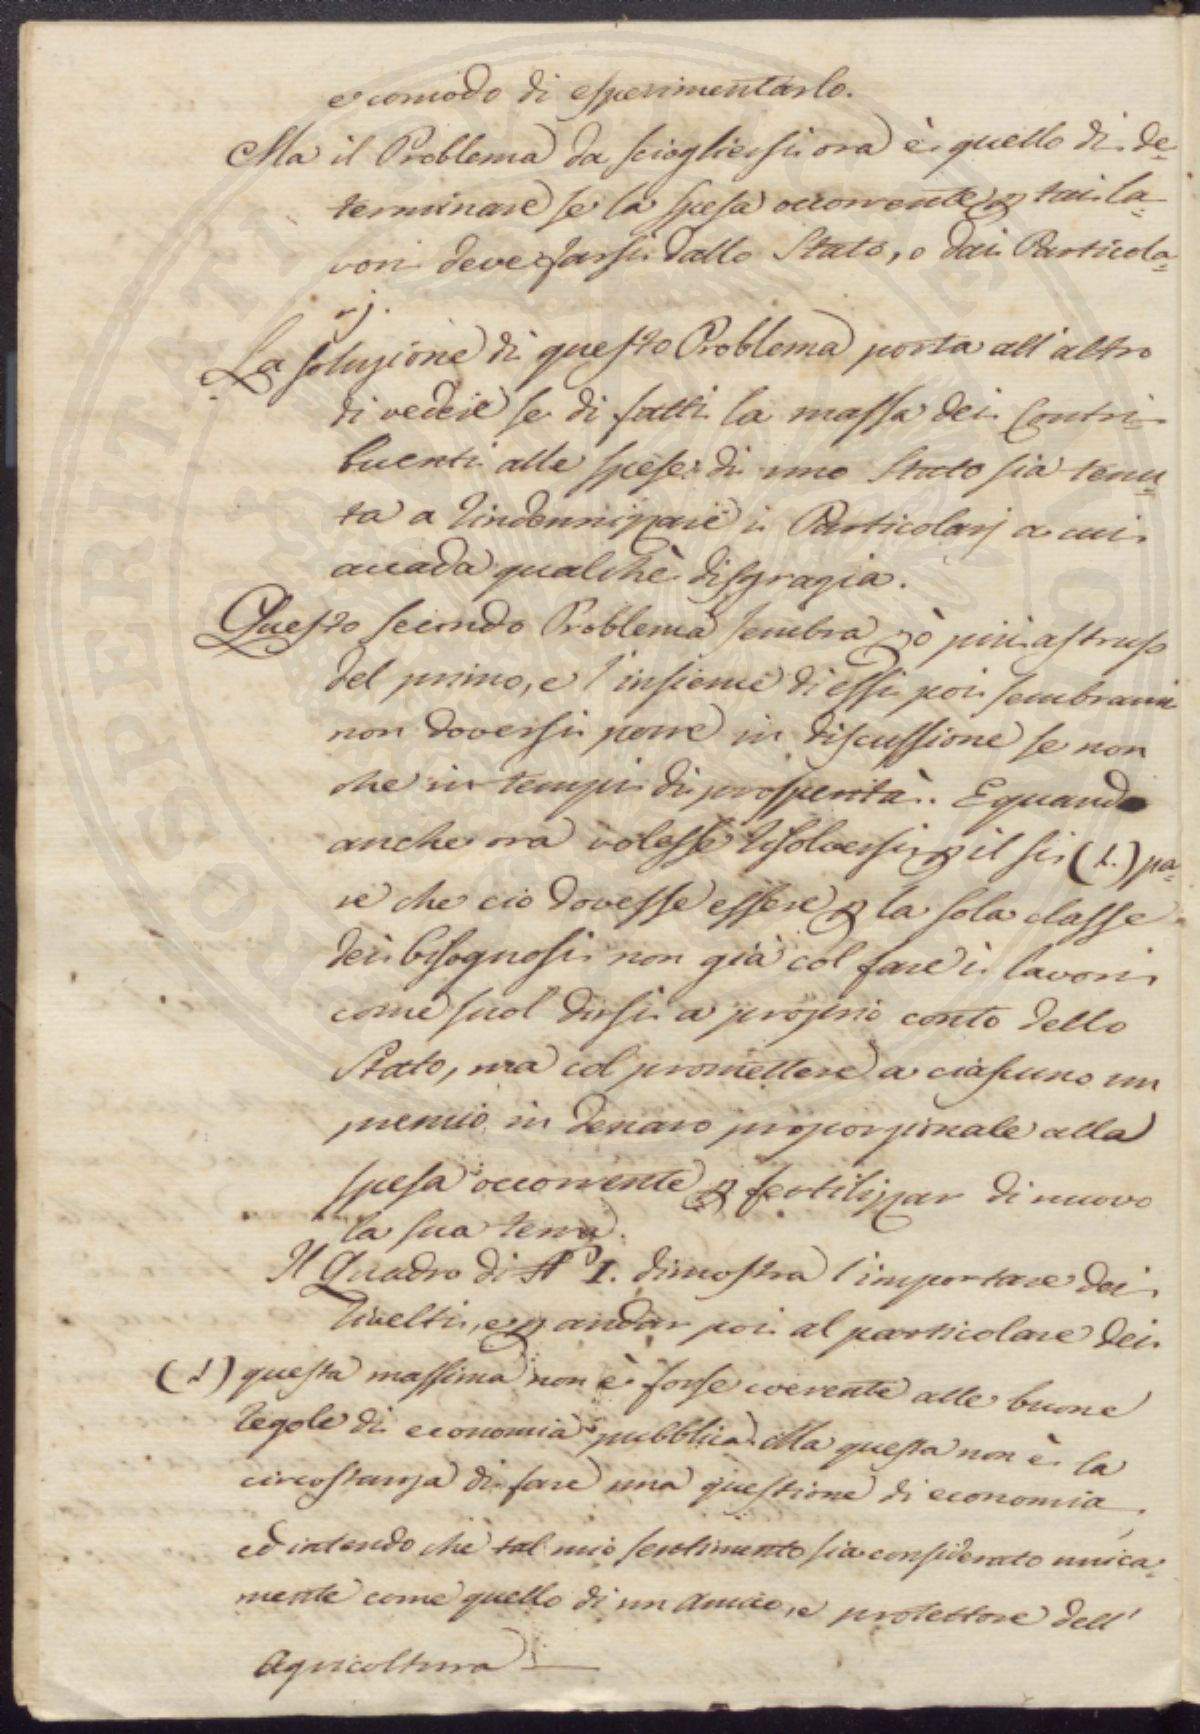 e comodo di esperimentarlo.
Ma il Problema da sciogliersi ora è quello di de=
terminare se la spesa occorrente p tai la=
vori deve farsi dallo Stato, o dai Particola=
rj.
La soluzione di questo Problema porta all'altro
di vedere se di fatti la massa dei Contri=
buenti alle spese di uno Stato sia tenu=
ta a rindennizzare i Particolarj a cui
accada qualchè disgrazia.
Questo secondo Problema sembra pò più astruso
del primo, e l'insieme di essi poi sembrami
non doversi porre in discussione se non
che in tempi di prosperità. E quando
anche ora volesse risolversi p il si (1.) pa=
re che ciò dovesse essere p la sola classe
dei bisognosi non già col fare i lavori
come suol dirsi a proprio conto dello
Stato, ma col promettere a ciascuno un
premio in denaro proporzionale alla
spesa occorrente p fertilizzar di nuovo
la sua terra.
Il Quadro di N° I. dimostra l'importare dei
rivelti, e p andar poi al particolare dei
(1) questa massima non è forse coerente alle buone
regole di economia pubblica. Ma questa non è la
circostanza di fare una questione di economia,
ed intendo che tal mio sentimento sia considerato unica=
mente come quello di un Amico, e protettore dell'
Agricoltura
PROSPERITATI